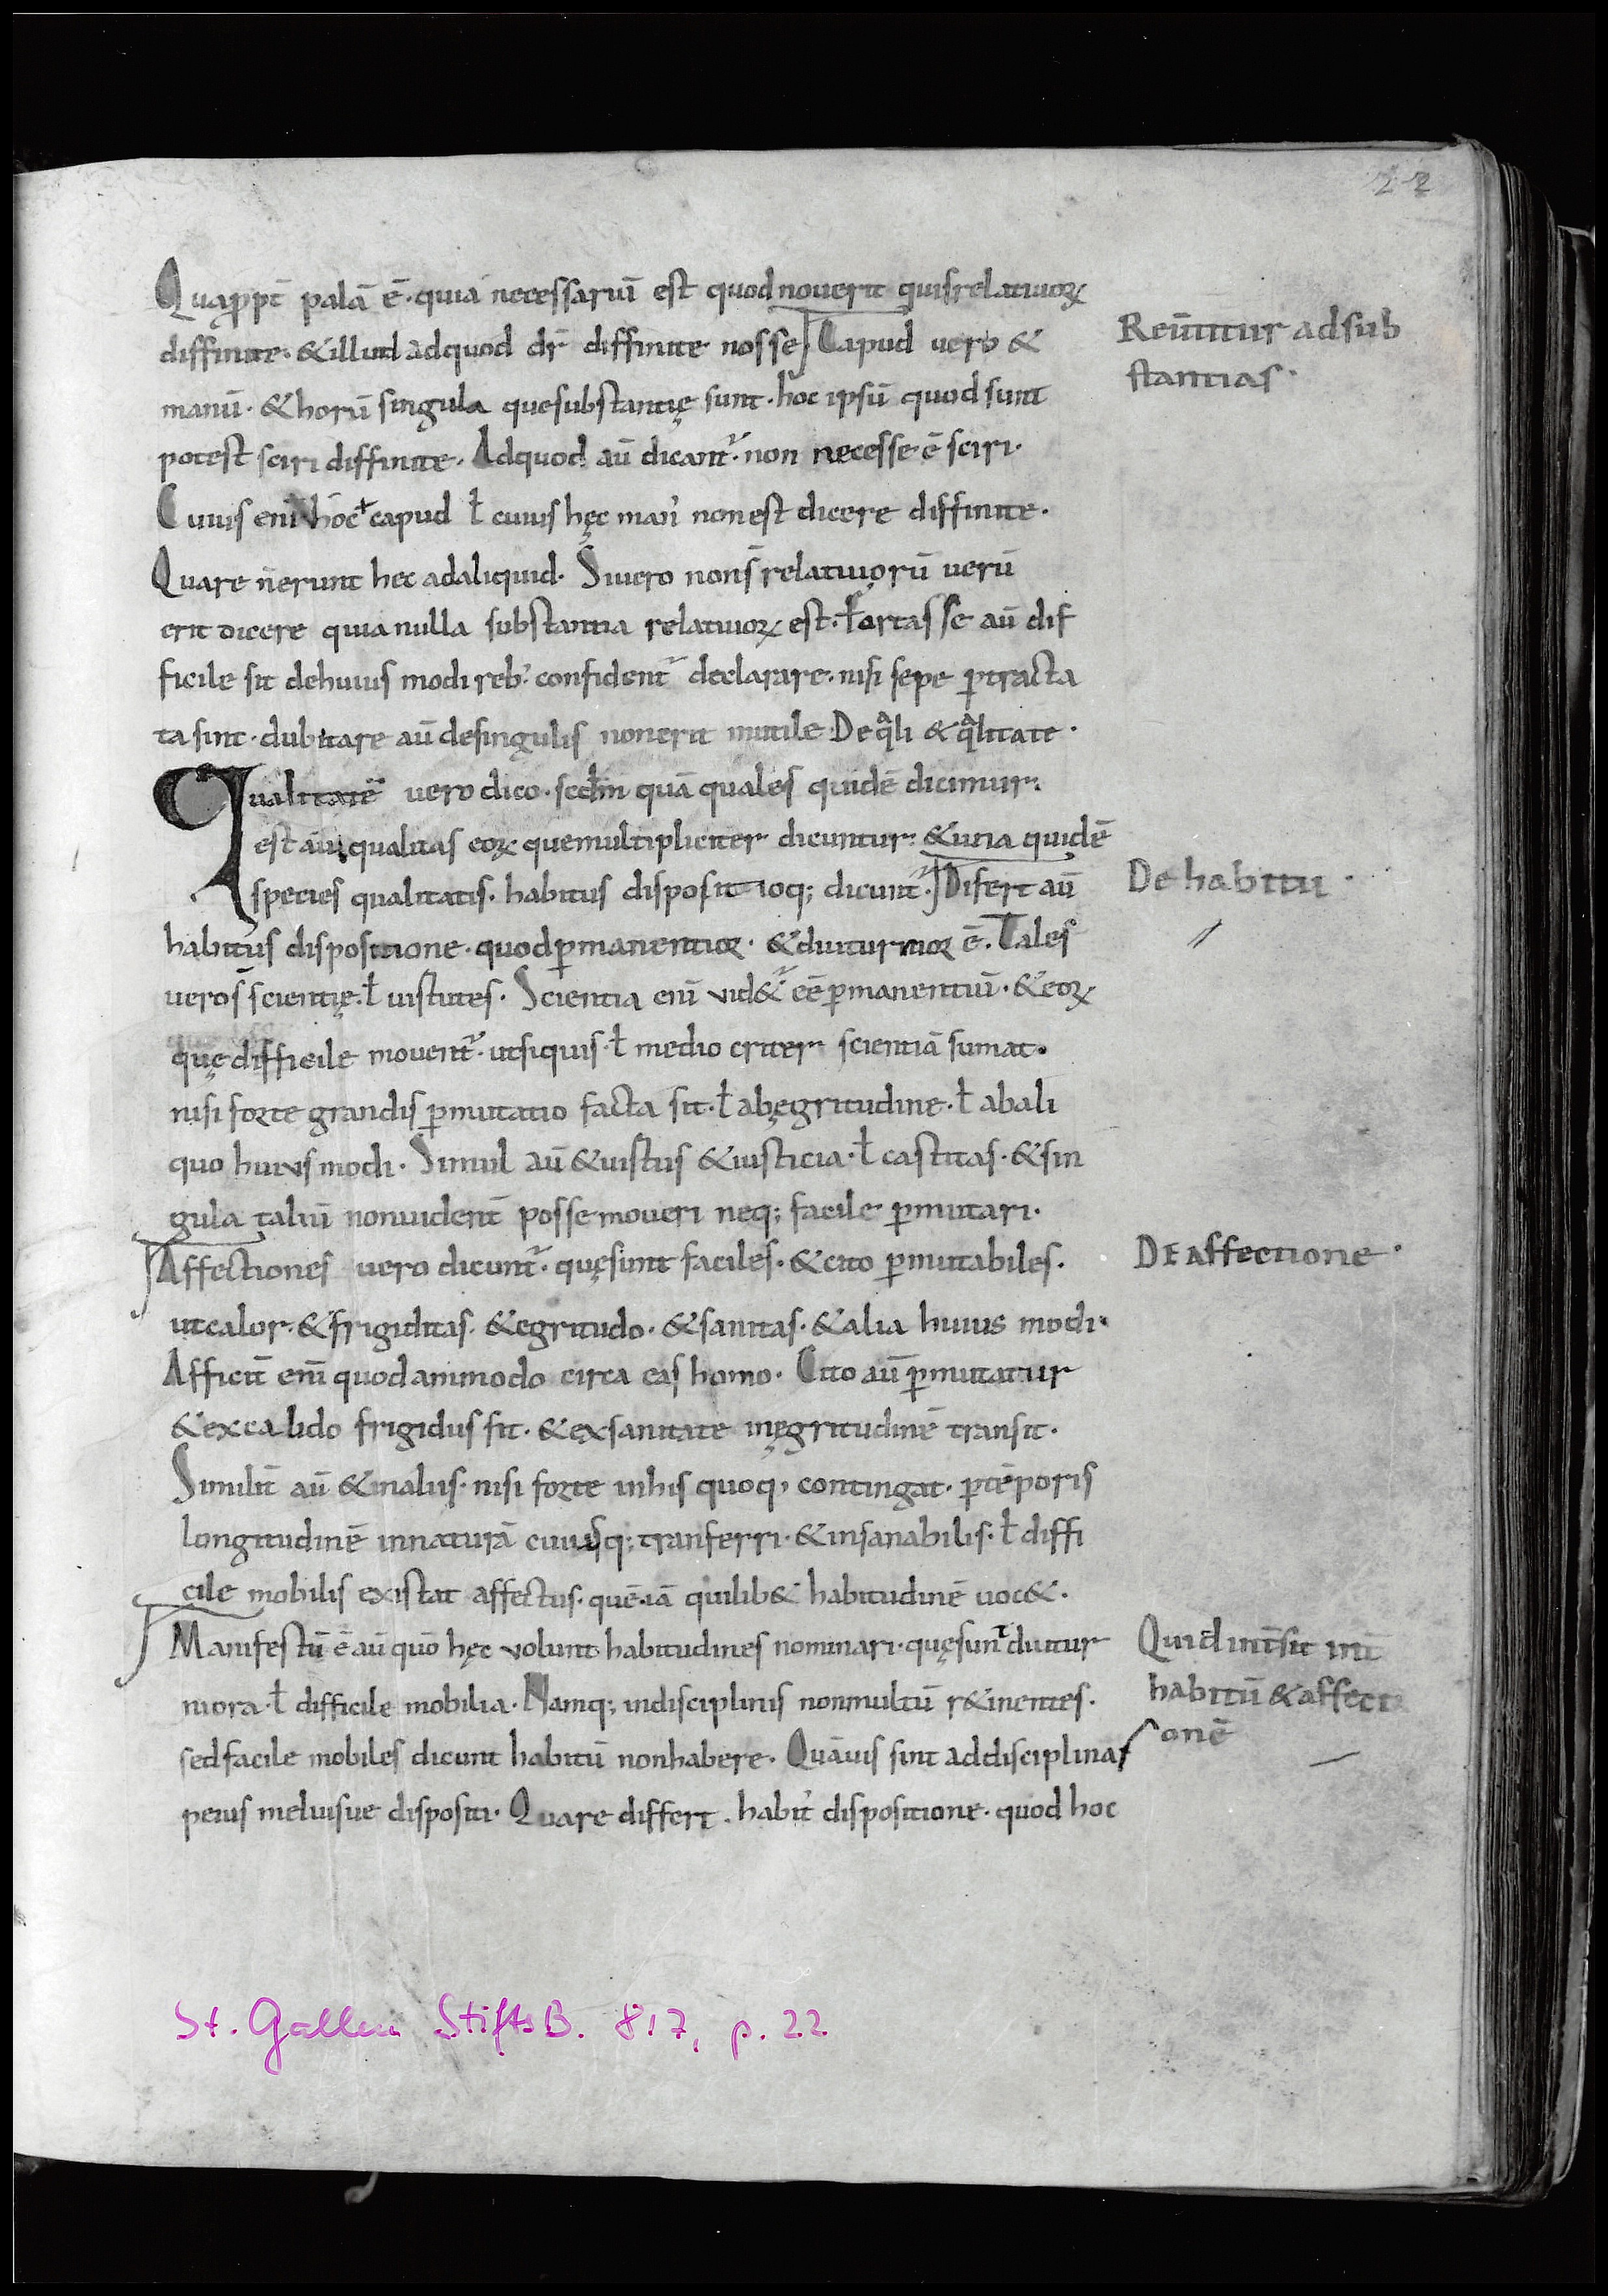 22
Quapropt̄ palā ē· quia necessariū est quod noverit quis relativoꝝ
diffinite· & illud ad quod dr̄ diffinite nosse Capud vero &
manū· & horū singula que substantię sunt· hoc ipsū quod sunt
potest sciri diffinite· Ad quod aū dicant᷑· non necesse ē sciri·
Cuius enī hoc capud ł cuius hęc man᾿ non est dicere diffinite·
Quare n̄ erunt hec ad aliquid· Si uero non s̄ relatiuorū uerū
erit dicere quia nulla substantia relatiuoꝝ est· Fortasse aū dif
ficile sit de huius modi reb᾿ confident᷑ declarare· nisi sepe ꝑtracta
ta sint· dubitare aū de singulis non erit inutile De q̄li & q̄litate·
Qualitatē uero dico· scdm̄ quā quales quidē dicimur·
est aū qualitas eoꝝ que multipliciter dicuntur· & una quidē
species qualitatis· habitus dispositioq; dicunt᷑· Difert aū
habitus dispositione· quod ꝑmanentior· & diuturnior ē· Tales
uero s̄ scientię· ł uirtutes· Scientia enī uid&᷑ eē ꝑmanentiū· & eoꝝ
quę difficile movent᷑· ut si quis· ł mediocriter scientiā sumat·
nisi forte grandis ꝑmutatio facta sit· ł ab ęgritudine· ł ab ali
quo huius modi· Simul aū & uirtus & iusticia· ł castitas· & sin
gula taliū non uident̄ posse moueri neq; facile ꝑmutari·
Affectiones uero dicunt᷑· quę sunt faciles· & cito ꝑmutabiles·
ut calor· & frigiditas· & egritudo· & sanitas· & alia huius modi·
Afficit̄ enī quod ammodo circa eas homo· Cito aū ꝑmutatur
& ex calido frigidus fit· & ex sanitate in ęgritudinē transit·
Similit̄ aū & in aliis· nisi forte in his quoq; contingat· ꝑ tēporis
longitudinē in naturā cuiusq; tranferri· & insanabilis· ł diffi
cile mobilis existat affectus· quē iā quilib& habitudinē uoc&·
Manifestū ē aū quō hęc volunt habitudines nominari· quę sunt diutur
niora· ł difficile mobilia· Namq; in disciplinis non multū r&inentes·
sed facile mobiles dicunt habitū non habere· Quāuis sint ad disciplinas
peius meliusue dispositi· Quare differt· habit᾿ dispositione· quod hoc
Reūtitur ad sub
stantias·
De habitu·
De affectione·
Quid int̄sit int̄
habitū & affecti
onē
St. Gallen StiftsB. 817, p. 22